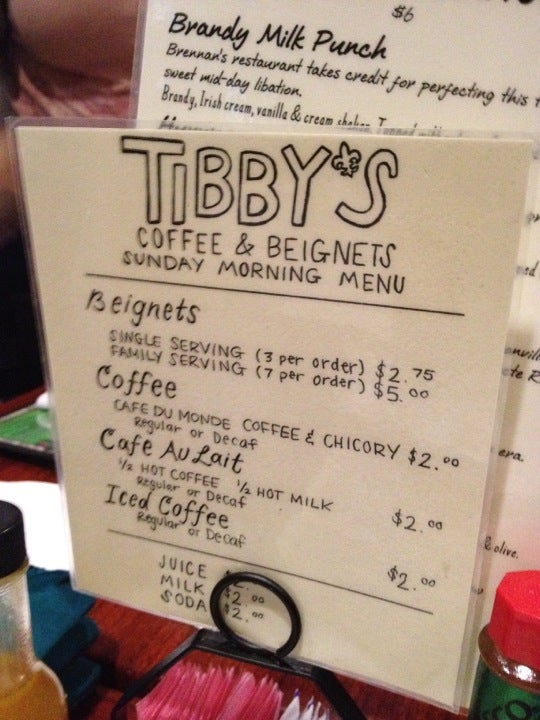 $6
Brandy Milk Punch
Brennan's restaurant takes credit for perfecting this
sweet mid-day libation.
Brandy, Irish cream, vanilla & cream shaken
TIBBY'S
COFFEE & BEIGNETS
SUNDAY MORNING MENU
Beignets
SINGLE SERVING (3 per order) $2.75
FAMILY SERVING (7 per order) $5.00
Coffee
CAFE DU MONDE COFFEE & CHICORY $2.00
Regular or Decaf
Café Au Lait
1/2 HOT COFFEE 1/2 HOT MILK $2.00
Regular or Decaf
Iced Coffee
Regular or Decaf $2.00
JUICE
MILK $2.00
SODA $2.00
era.
& olive.